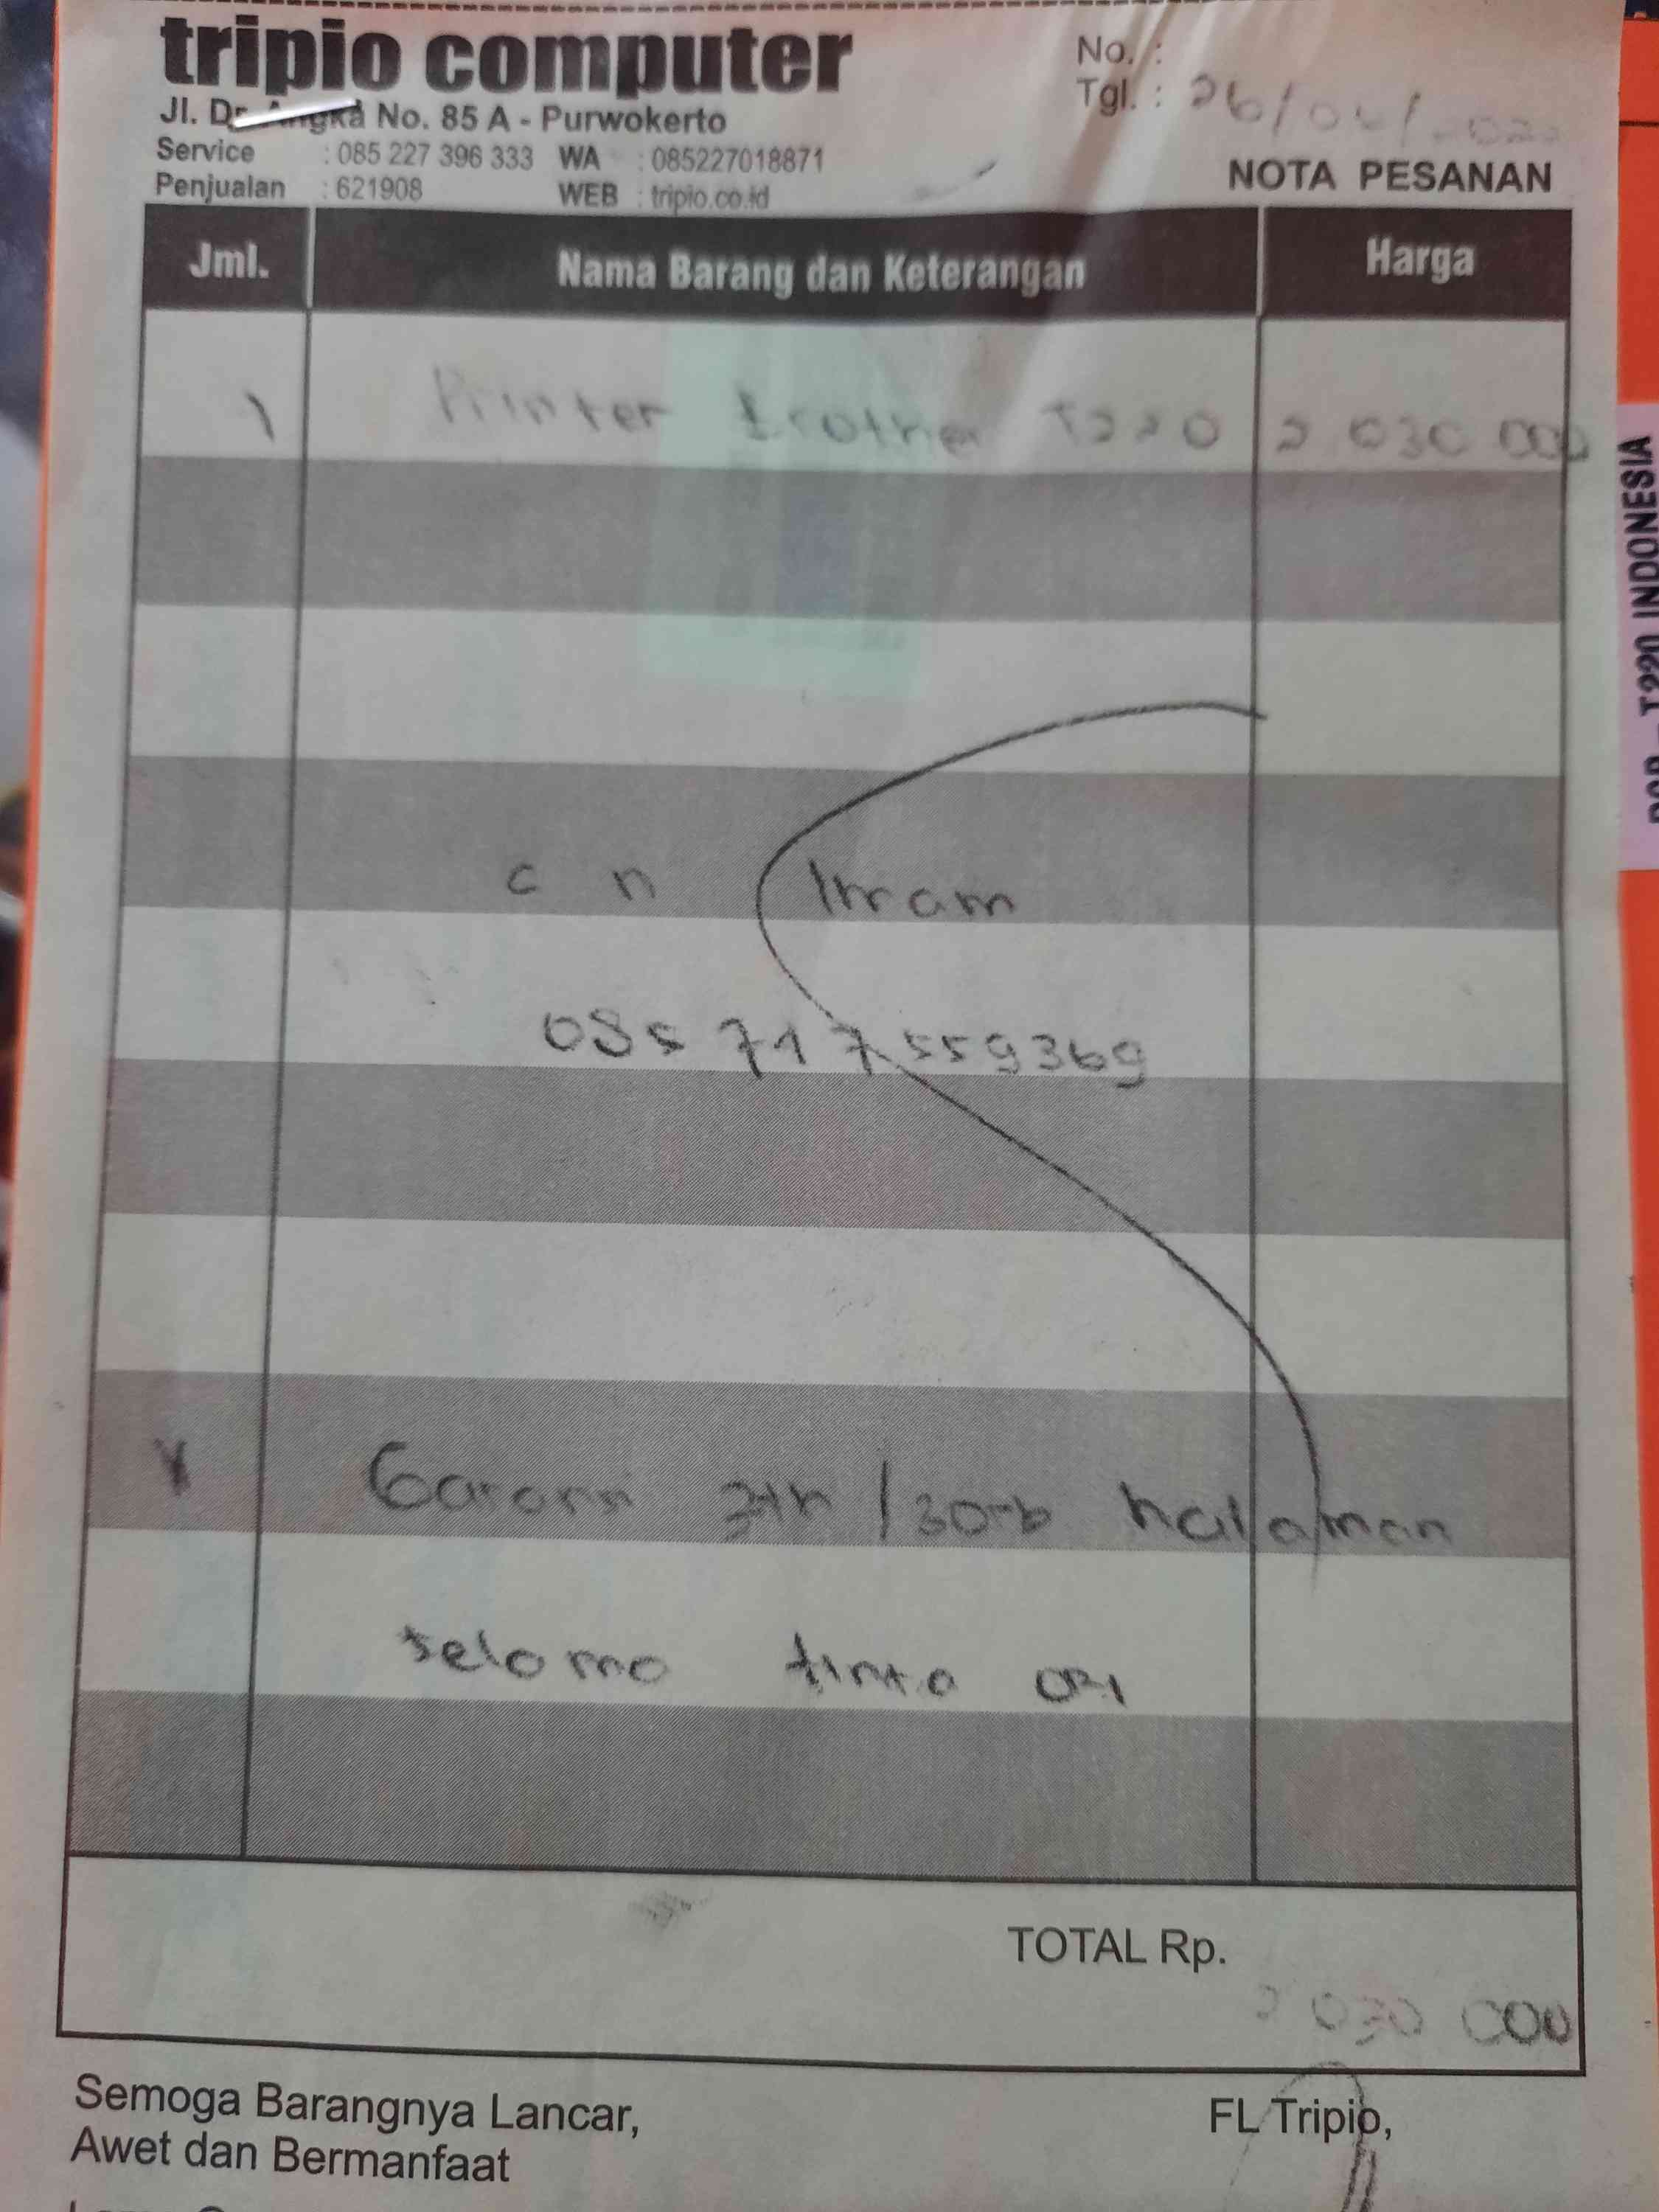 tripio computer
No. :
Jl. Dr. Angka No. 85 A - Purwokerto
Tgl. : 26/04/
Service : 085 227 396 333 WA : 085227018871
Penjualan : 621908 WEB : tripio.co.id
NOTA PESANAN
Jml. Nama Barang dan Keterangan Harga
1 Printer brother T220 2 030 000
Imam
085717559369
Garansi 3th / 30rb halaman
selama tinta ori
TOTAL Rp.
2 030 000
Semoga Barangnya Lancar,
Awet dan Bermanfaat
FL Tripio,
T220 INDONESIA